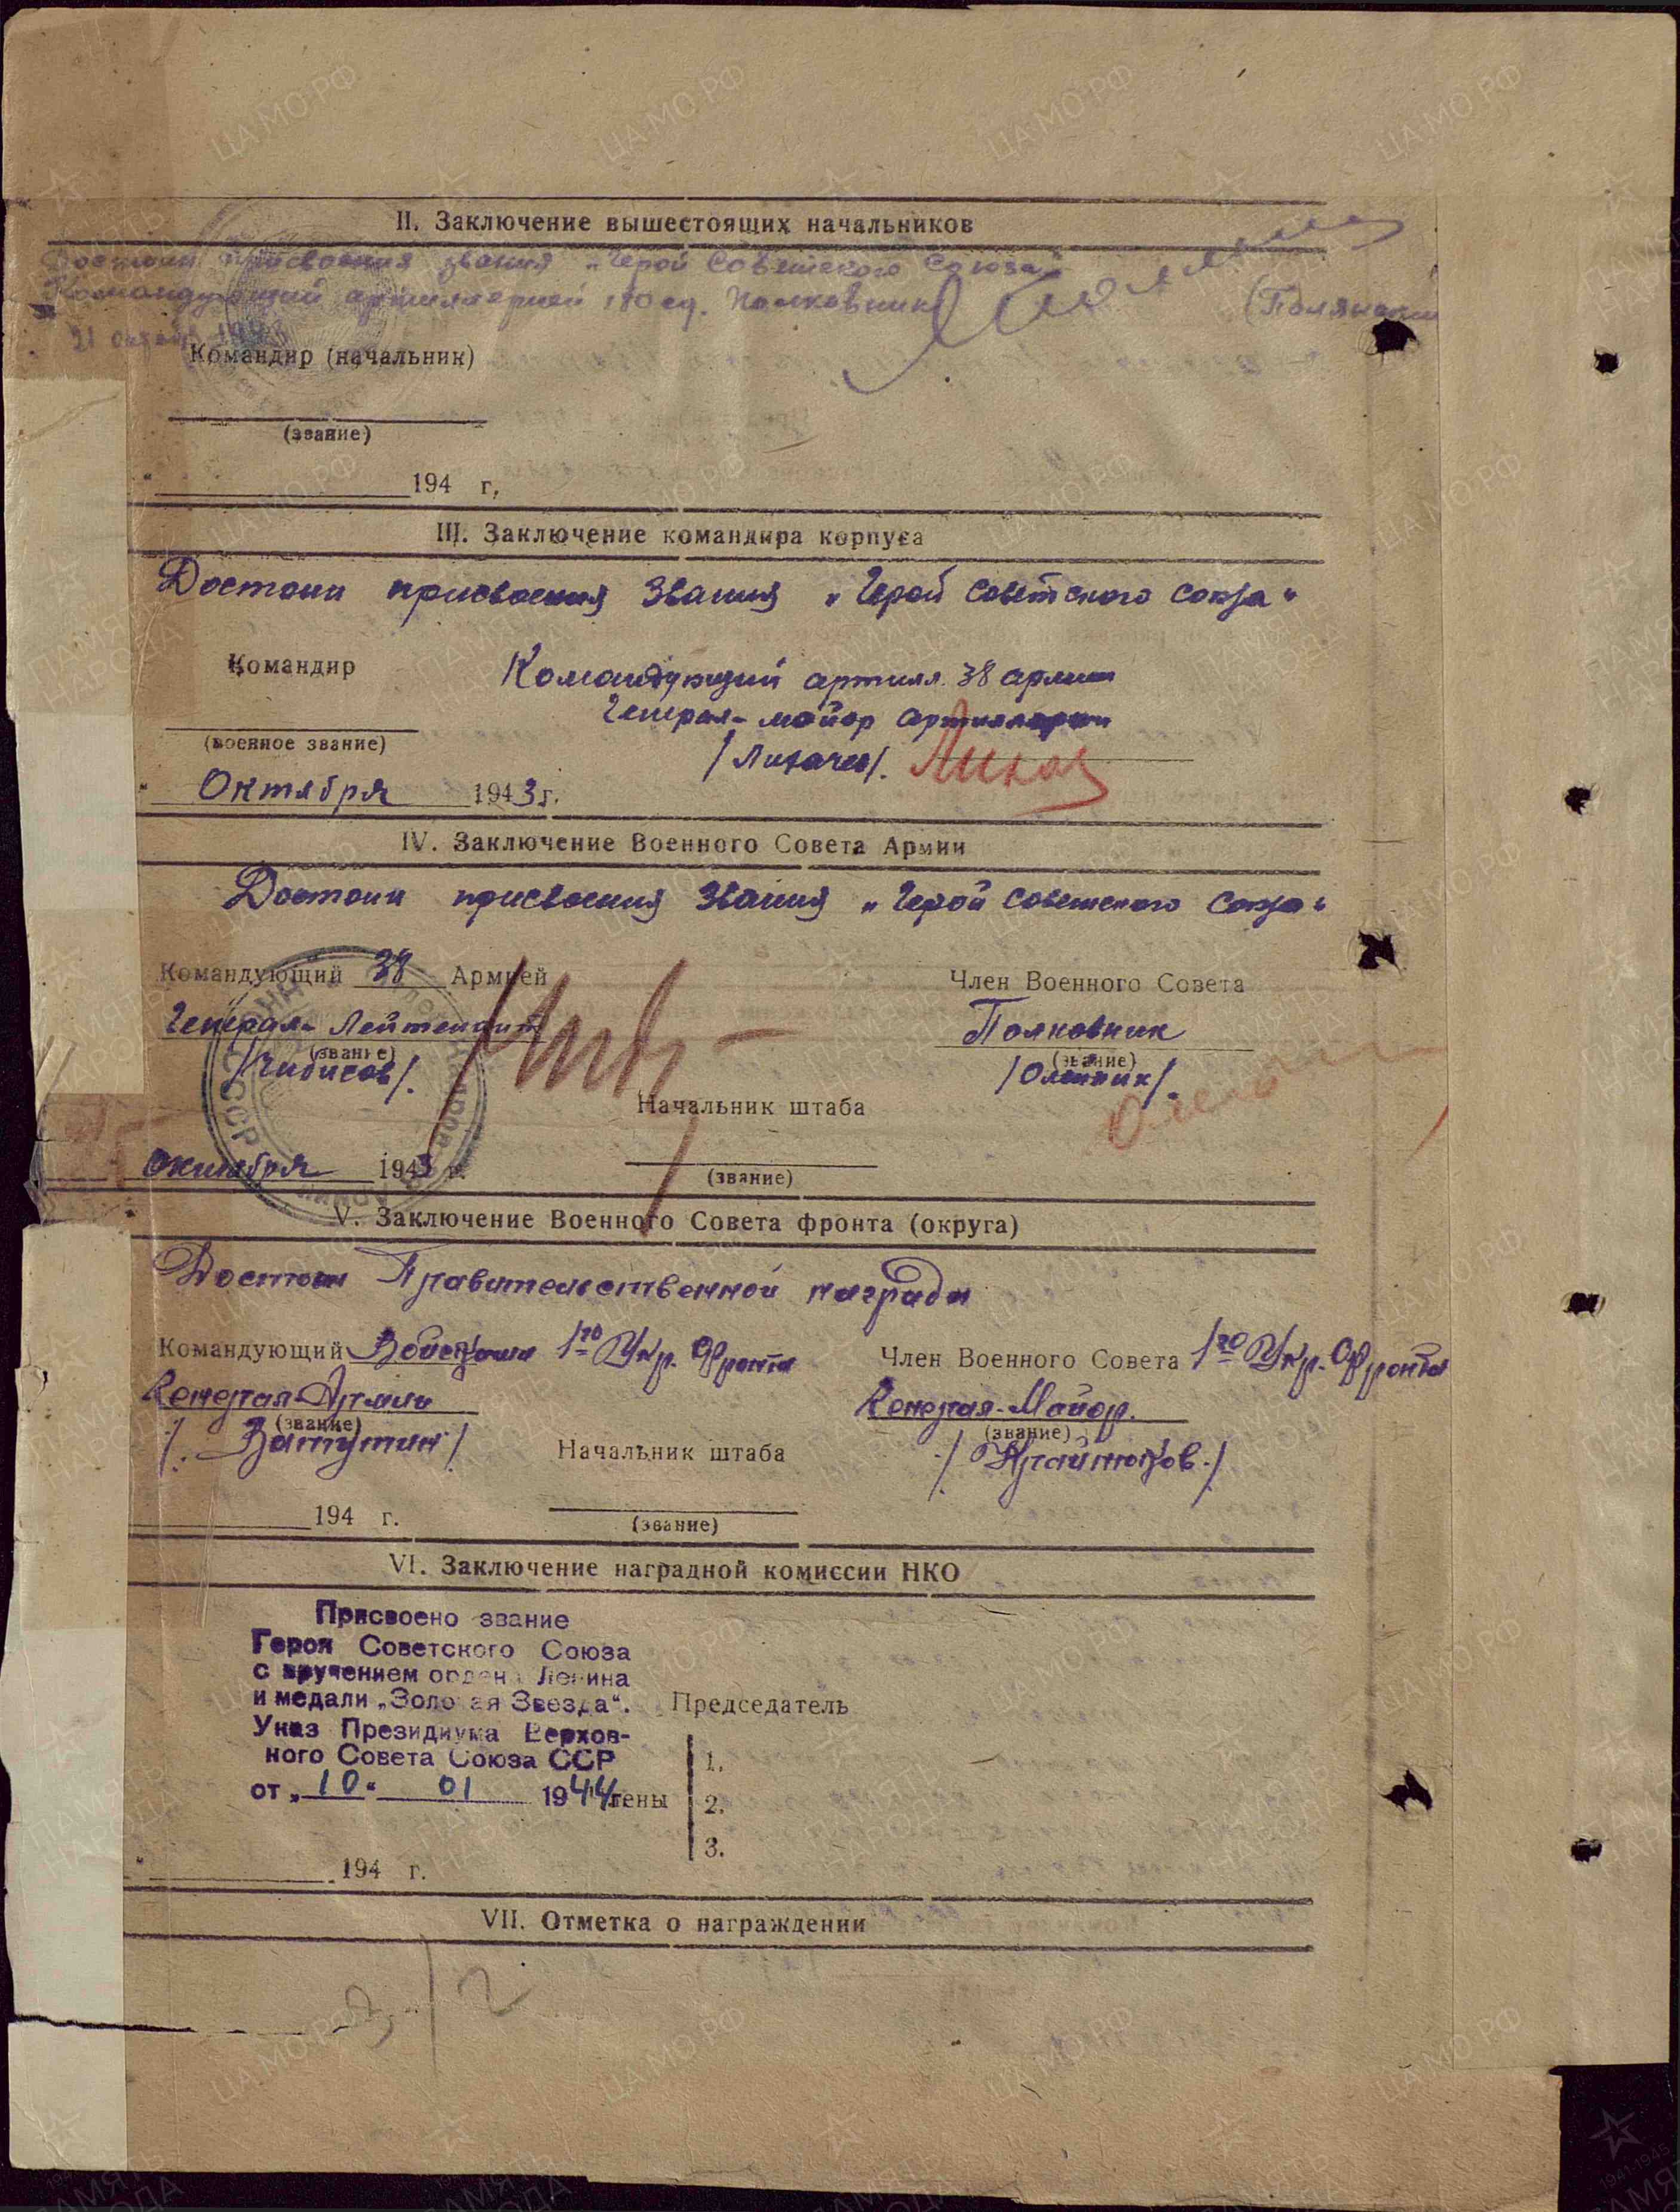 II. Заключение вышестоящих начальников
Достоин присвоения звания „Герой Советского Союза"
Командующий артиллерией 180 сд. Полковник (Полянский
21 октября 1943
Командир (начальник)
(звание)
194 г,
III. Заключение командира корпуса
Достоин присвоения звания „Герой Советского Союза"
Командир
Командующий артилл. 38 армии
Генерал-майор артиллерии
(военное звание)
/Лихачев/.
Октября 1943 г.
IV. Заключение Военного Совета Армии
Достоин присвоения звания „Герой Советского Союза"
Командующий 38 Армией
Член Военного Совета
Генерал-Лейтенант
Полковник
(звание)
(звание)
/Чибисов/.
/Олейник/.
Начальник штаба
Октября 1943 г.
(звание)
V. Заключение Военного Совета фронта (округа)
Достоин Правительственной награды
Командующий Войсками 1го Укр. Фронта
Член Военного Совета 1го Укр. Фронта
Генерал Армии
Генерал-Майор.
(звание)
(звание)
/. Ватутин /
Начальник штаба
/ Крайнюков./
194 г.
(звание)
VI. Заключение наградной комиссии НКО
Присвоено звание
Героя Советского Союза
с вручением ордена Ленина
и медали „Золотая Звезда".
Председатель
Указ Президиума Верхов-
ного Совета Союза ССР
1.
от „10" 01 1944
лены
2.
3.
194 г.
VII. Отметка о награждении
3/2